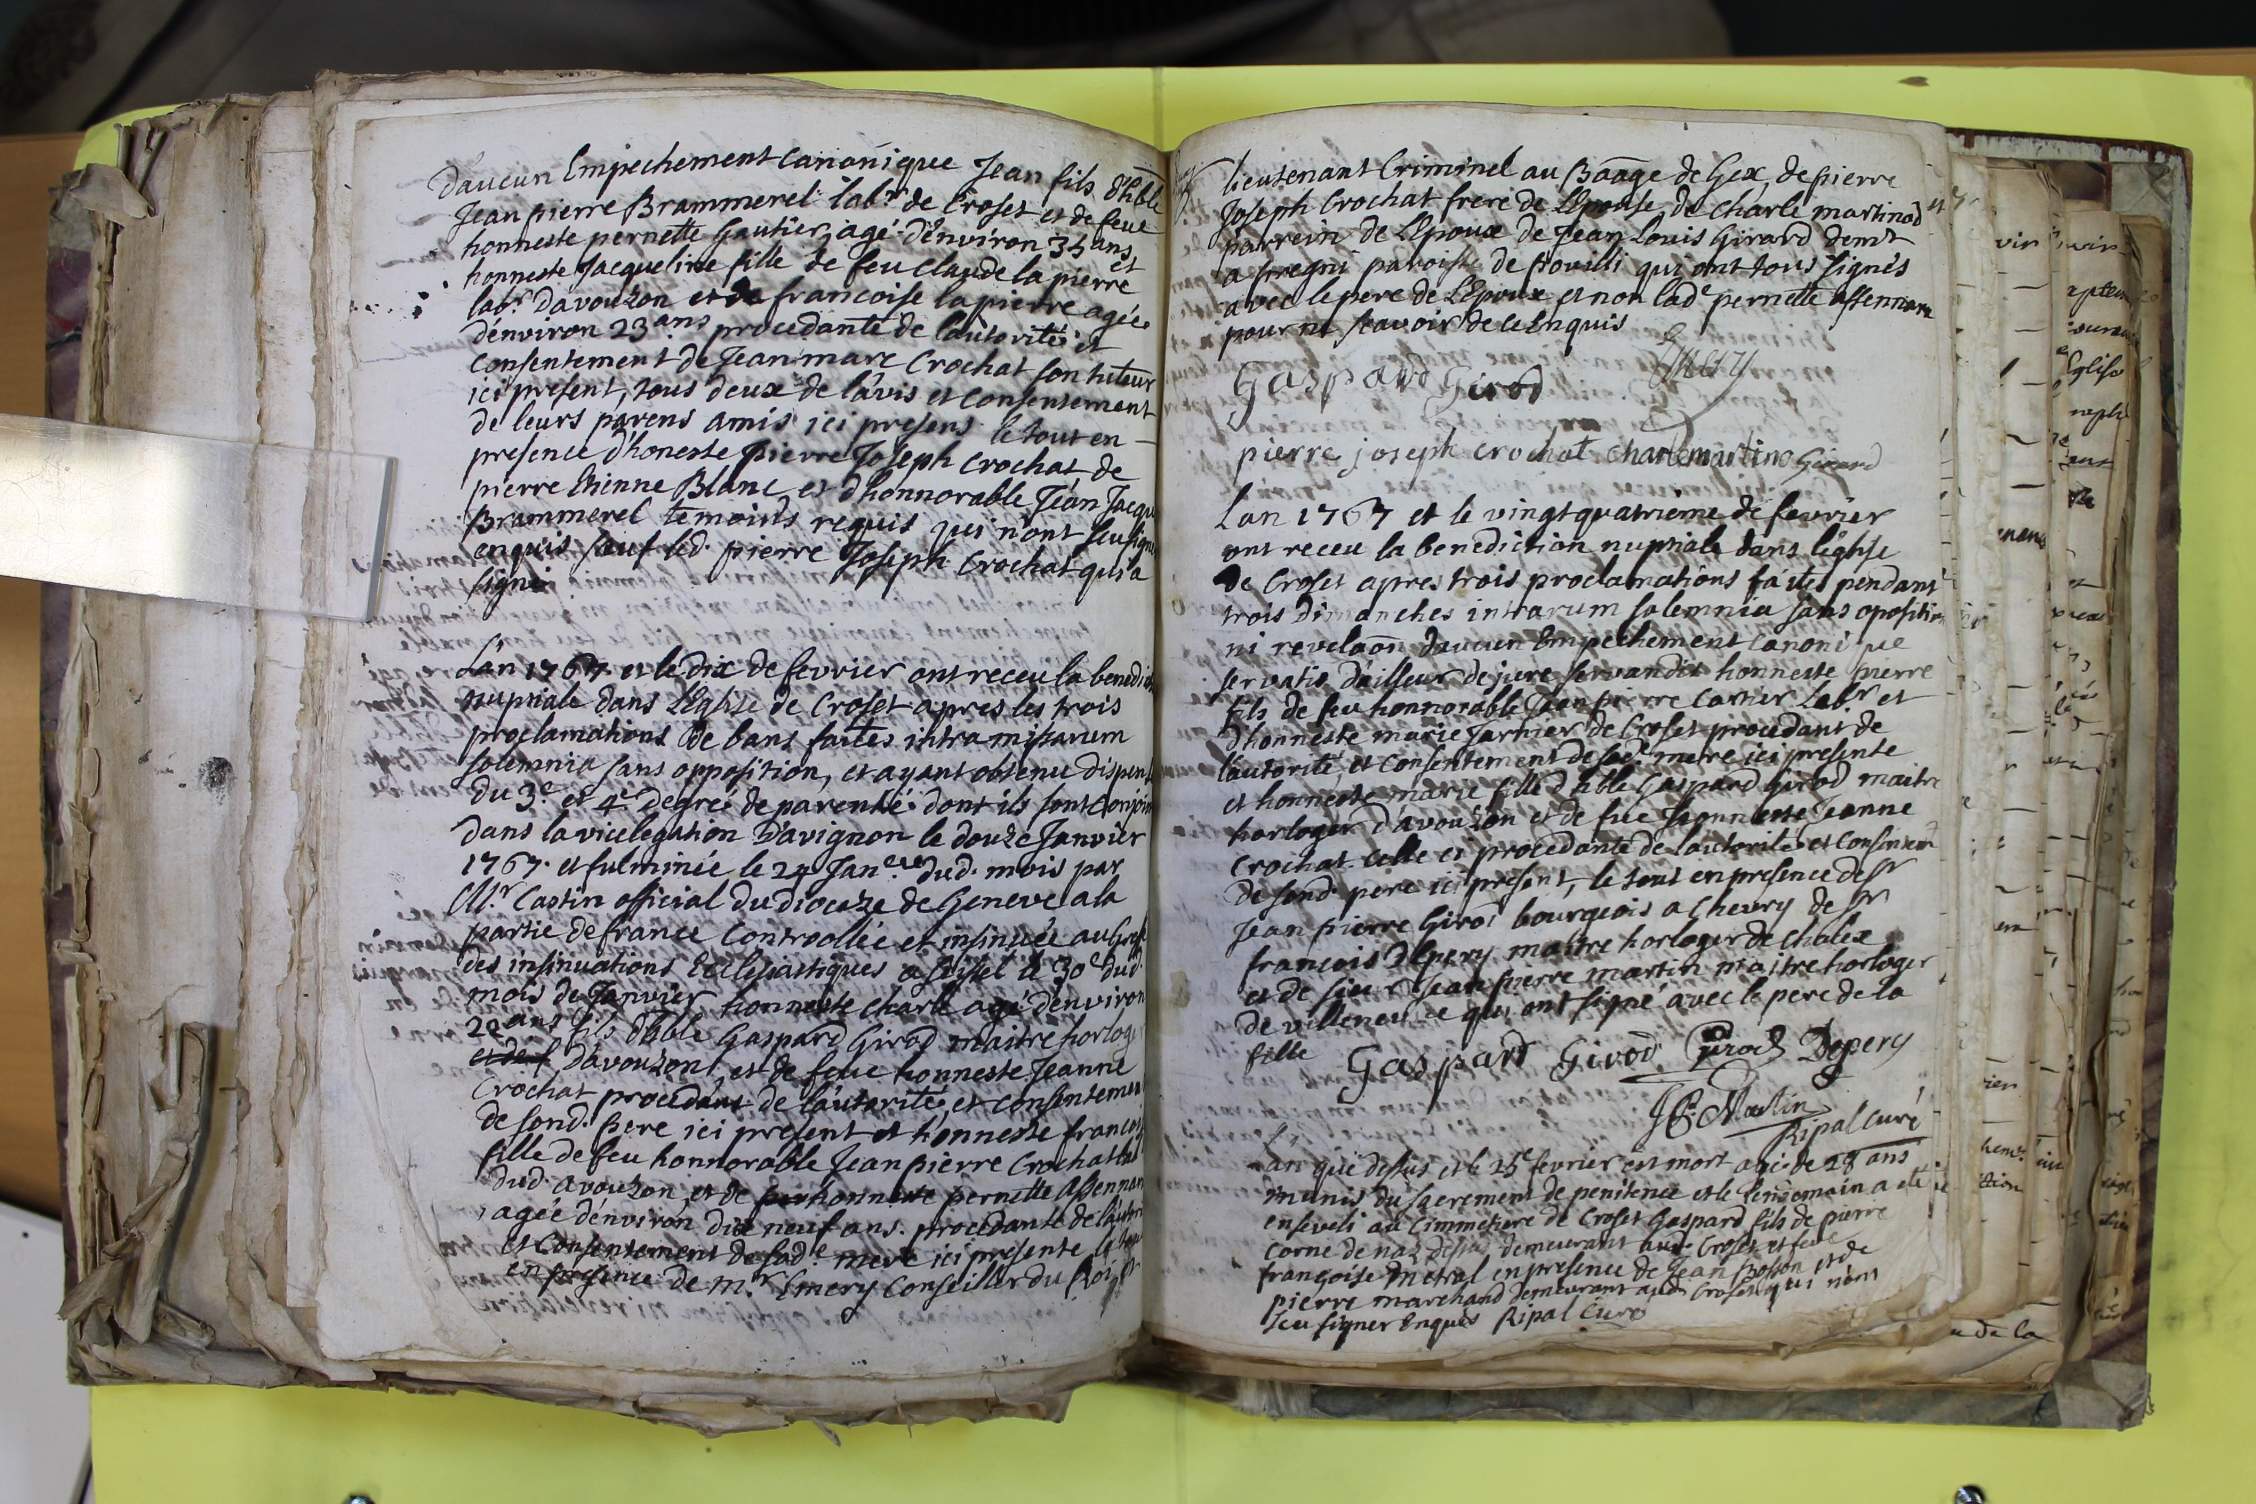 d'aucun Empechement Canonique Jean fils d'hble
Jean pierre Brammerel labr de Croset et de feue
honneste pernette Gautier, agé d'environ 35 ans et
honneste Jacqueline fille de feu Claude la pierre
labr. Davouzon et de francoise la pierre agée
d'environ 23 ans procedante de l'autorité et
Consentement de Jean marc Crochat son tuteur
ici present, tous deux de l'avis et Consentement
de leurs parens amis ici presens le tout en
presence d'honeste Pierre Joseph Crochat, de
pierre Etienne Blanc et d'honnorable Jean Jacque
Brammerel temoins requis qui n'ont sçu signer
enquis sauf led. pierre Joseph Crochat qui a
signé
L'an 1767 et le dix de fevrier ont receu la benedict
nuptiale dans L'Eglise de Croset apres les trois
proclamations de bans faites intra missarum
solemnia sans opposition, et ayant obtenu dispense
du 3e et 4e degreé de parenté dont ils sont Conjoin
dans la vicelegation D'avignon le douze Janvier
1767. et fulminée le 24 Jan.er dud. mois par
Mr. Castin official du diocèze de Geneve a la
partie de france Controollée et insinuée au Greffe
des insinuations Ecclesiastiques a seissel le 30e dud.
mois de Janvier honneste Charle agé d'environ
22 ans fils d'hble Gaspard Girod maitre horloger
Davouzon, et de feue honneste Jeanne
Crochat procedant de l'autorité et consentement
de sond. Pere ici present et honneste francois
fille de feu honnorable Jean pierre Crochat lab
dud. avouzon et de honneste pernette Assennar
agée d'environ dix neuf ans. procedante de l'autori
et Consentement de sade. mere ici presente le tout
en presence de mr. Emery Conseiller du Roi
lieutenant Criminel au Baãge de Gex, de pierre
Joseph Crochat frere de L'Epouse de Charle martinod et
parrein de L'Epoux de Jean Louis Girard demt
a pregni paroisse de pouilli qui ont tous signés
avec le pere de L'Epoux et non lade pernette Assennar
pour ne sçavoir de ce Enquis
Emery
Gaspard Girod
pierre joseph crochat charle martino Girard
Lan 1767 et le vingt quatrieme de fevrier
ont receu la benediction nuptiale dans l'eglise
de Croset apres trois proclamations faites pendant
trois Dimanches intrarum solemnia sans oposition
ni revelaõn daucun Empechement canonique
servatis d'ailleur de jure servandis honneste pierre
fils de feu honnorable Jean pierre Cartier Labr. et
d'honneste marie Jarnier de Croset procedant de
l'autorité et Consentement de sad. mere ici presente
et honneste marie fille d'hble Gaspard Girod maitre
horloger d'avouzon et de fue honneste Jeanne
Crochat celle ci procedante de l'autorité et Consentem
de sond. pere ici present, le tout en presence de sr
Jean pierre Girod bourgeois a Chevry de sr
francois Depery maitre horloger de Chalex
et de sieur Jean pierre martin maitre horloger
de villeneuve qui ont signé avec le pere de la
fille
Gaspard Girod Girod Depery
JP. Martin
Ripal Curé
L'an que dessus et le 25e fevrier est mort agé de 28 ans
munis du sacrement de penitence et le lendemain a eté
enseveli au Cimmetiere de Croset Gaspard fils de pierre
Corne de naz dessus demeurant aud. Croset et feue
françoise metral en presence de Jean Rosson et de
pierre marchand demeurant aud. Croset qui n'ont
sçu signer Enquis Ripal Curé